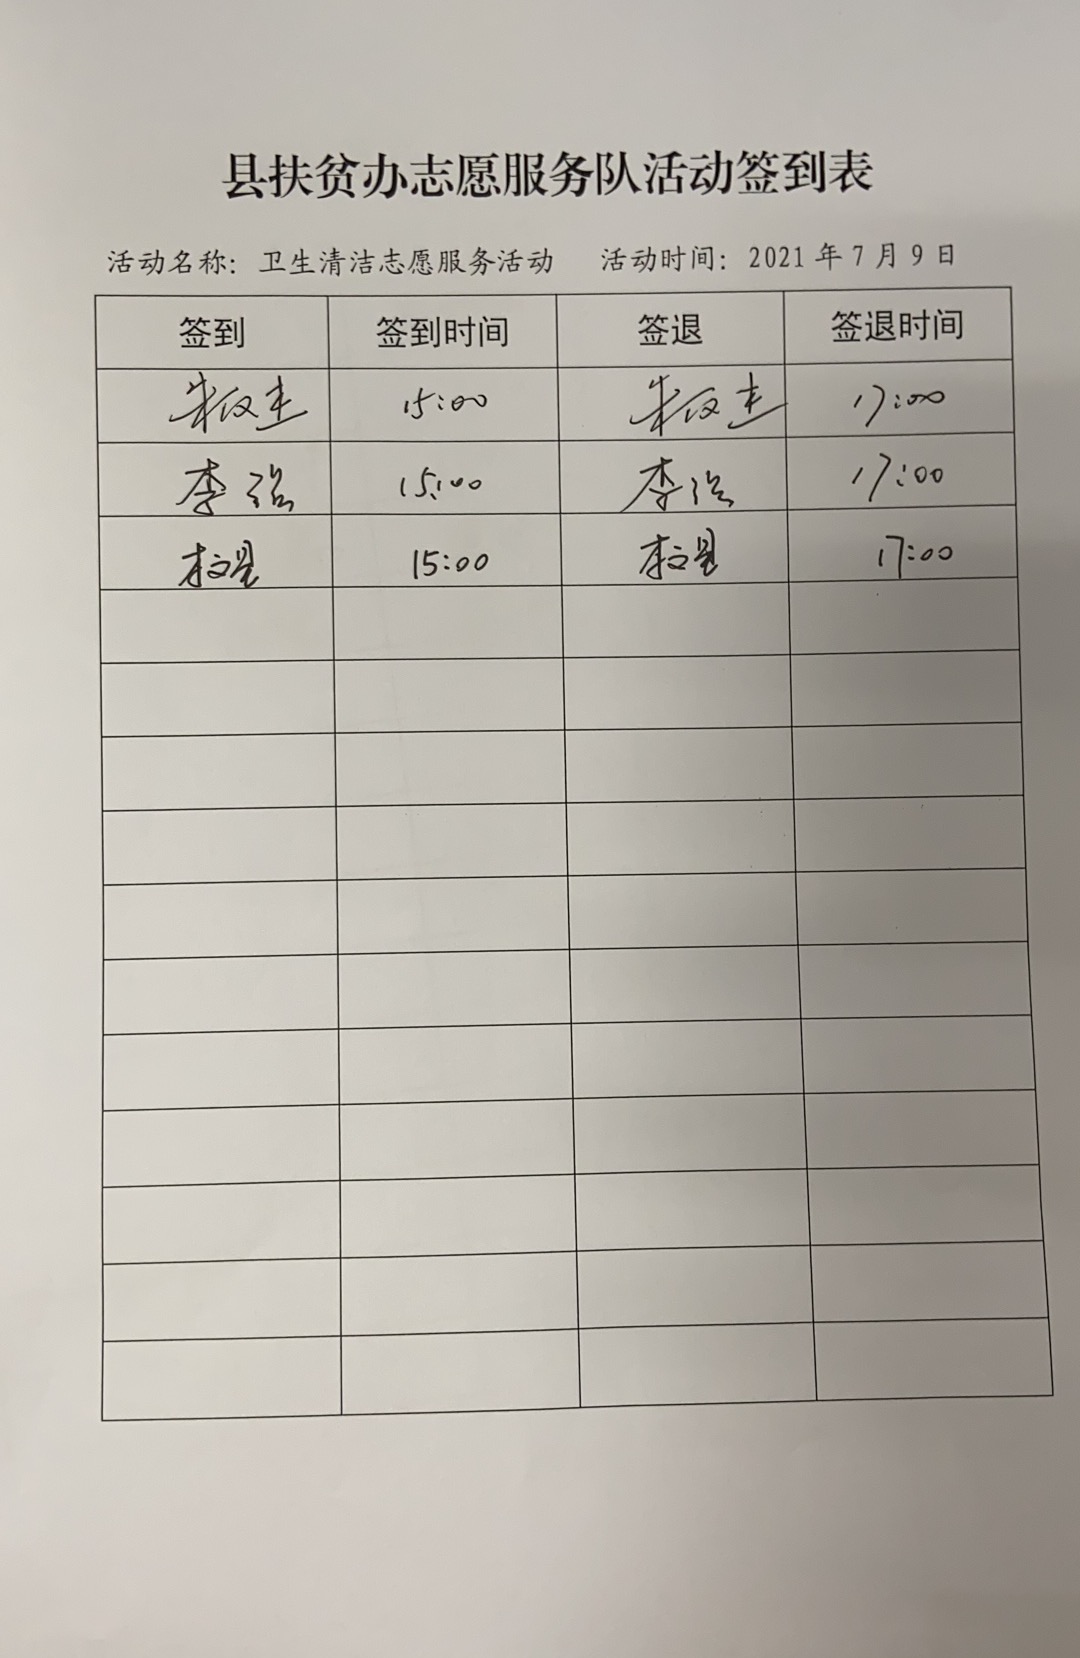 县扶贫办志愿服务队活动签到表
活动名称：卫生清洁志愿服务活动 活动时间：2021 年 7 月 9 日
签到 签到时间 签退 签退时间
15:00 17:00
李 15:00 李 17:00
15:00 17:00